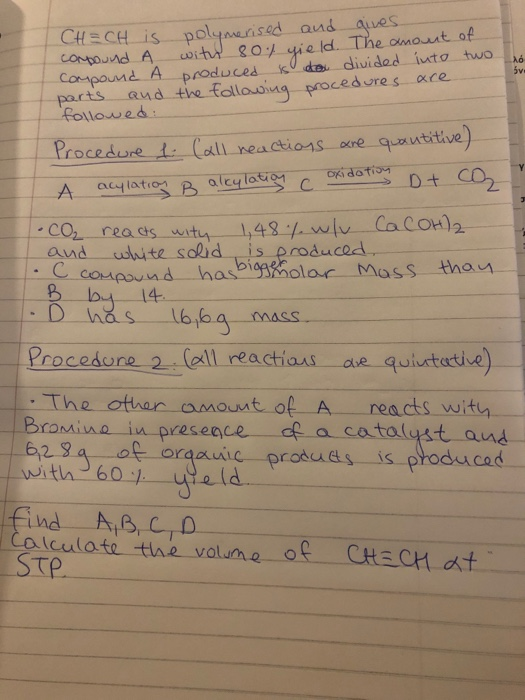 CH≡CH is polymerised and gives
compound A with 80% yield. The amout of
compound A produced is divided into two
parts and the following procedures are
followed:
Procedure 1: (all reactions are quantitive)
A acylation→ B alcylation→ C oxidation→ D + CO2
• CO2 reacts with 1,48 % w/v Ca(OH)2
and white solid is produced.
• C compound has bigger molar mass than
B by 14.
• D has 16,6g mass.
Procedure 2: (all reactions are quintative)
• The other amount of A reacts with
Bromine in presence of a catalyst and
6,28g of organic products is produced
with 60% yield.
find A,B,C,D
Calculate the volume of CH≡CH at
STP.